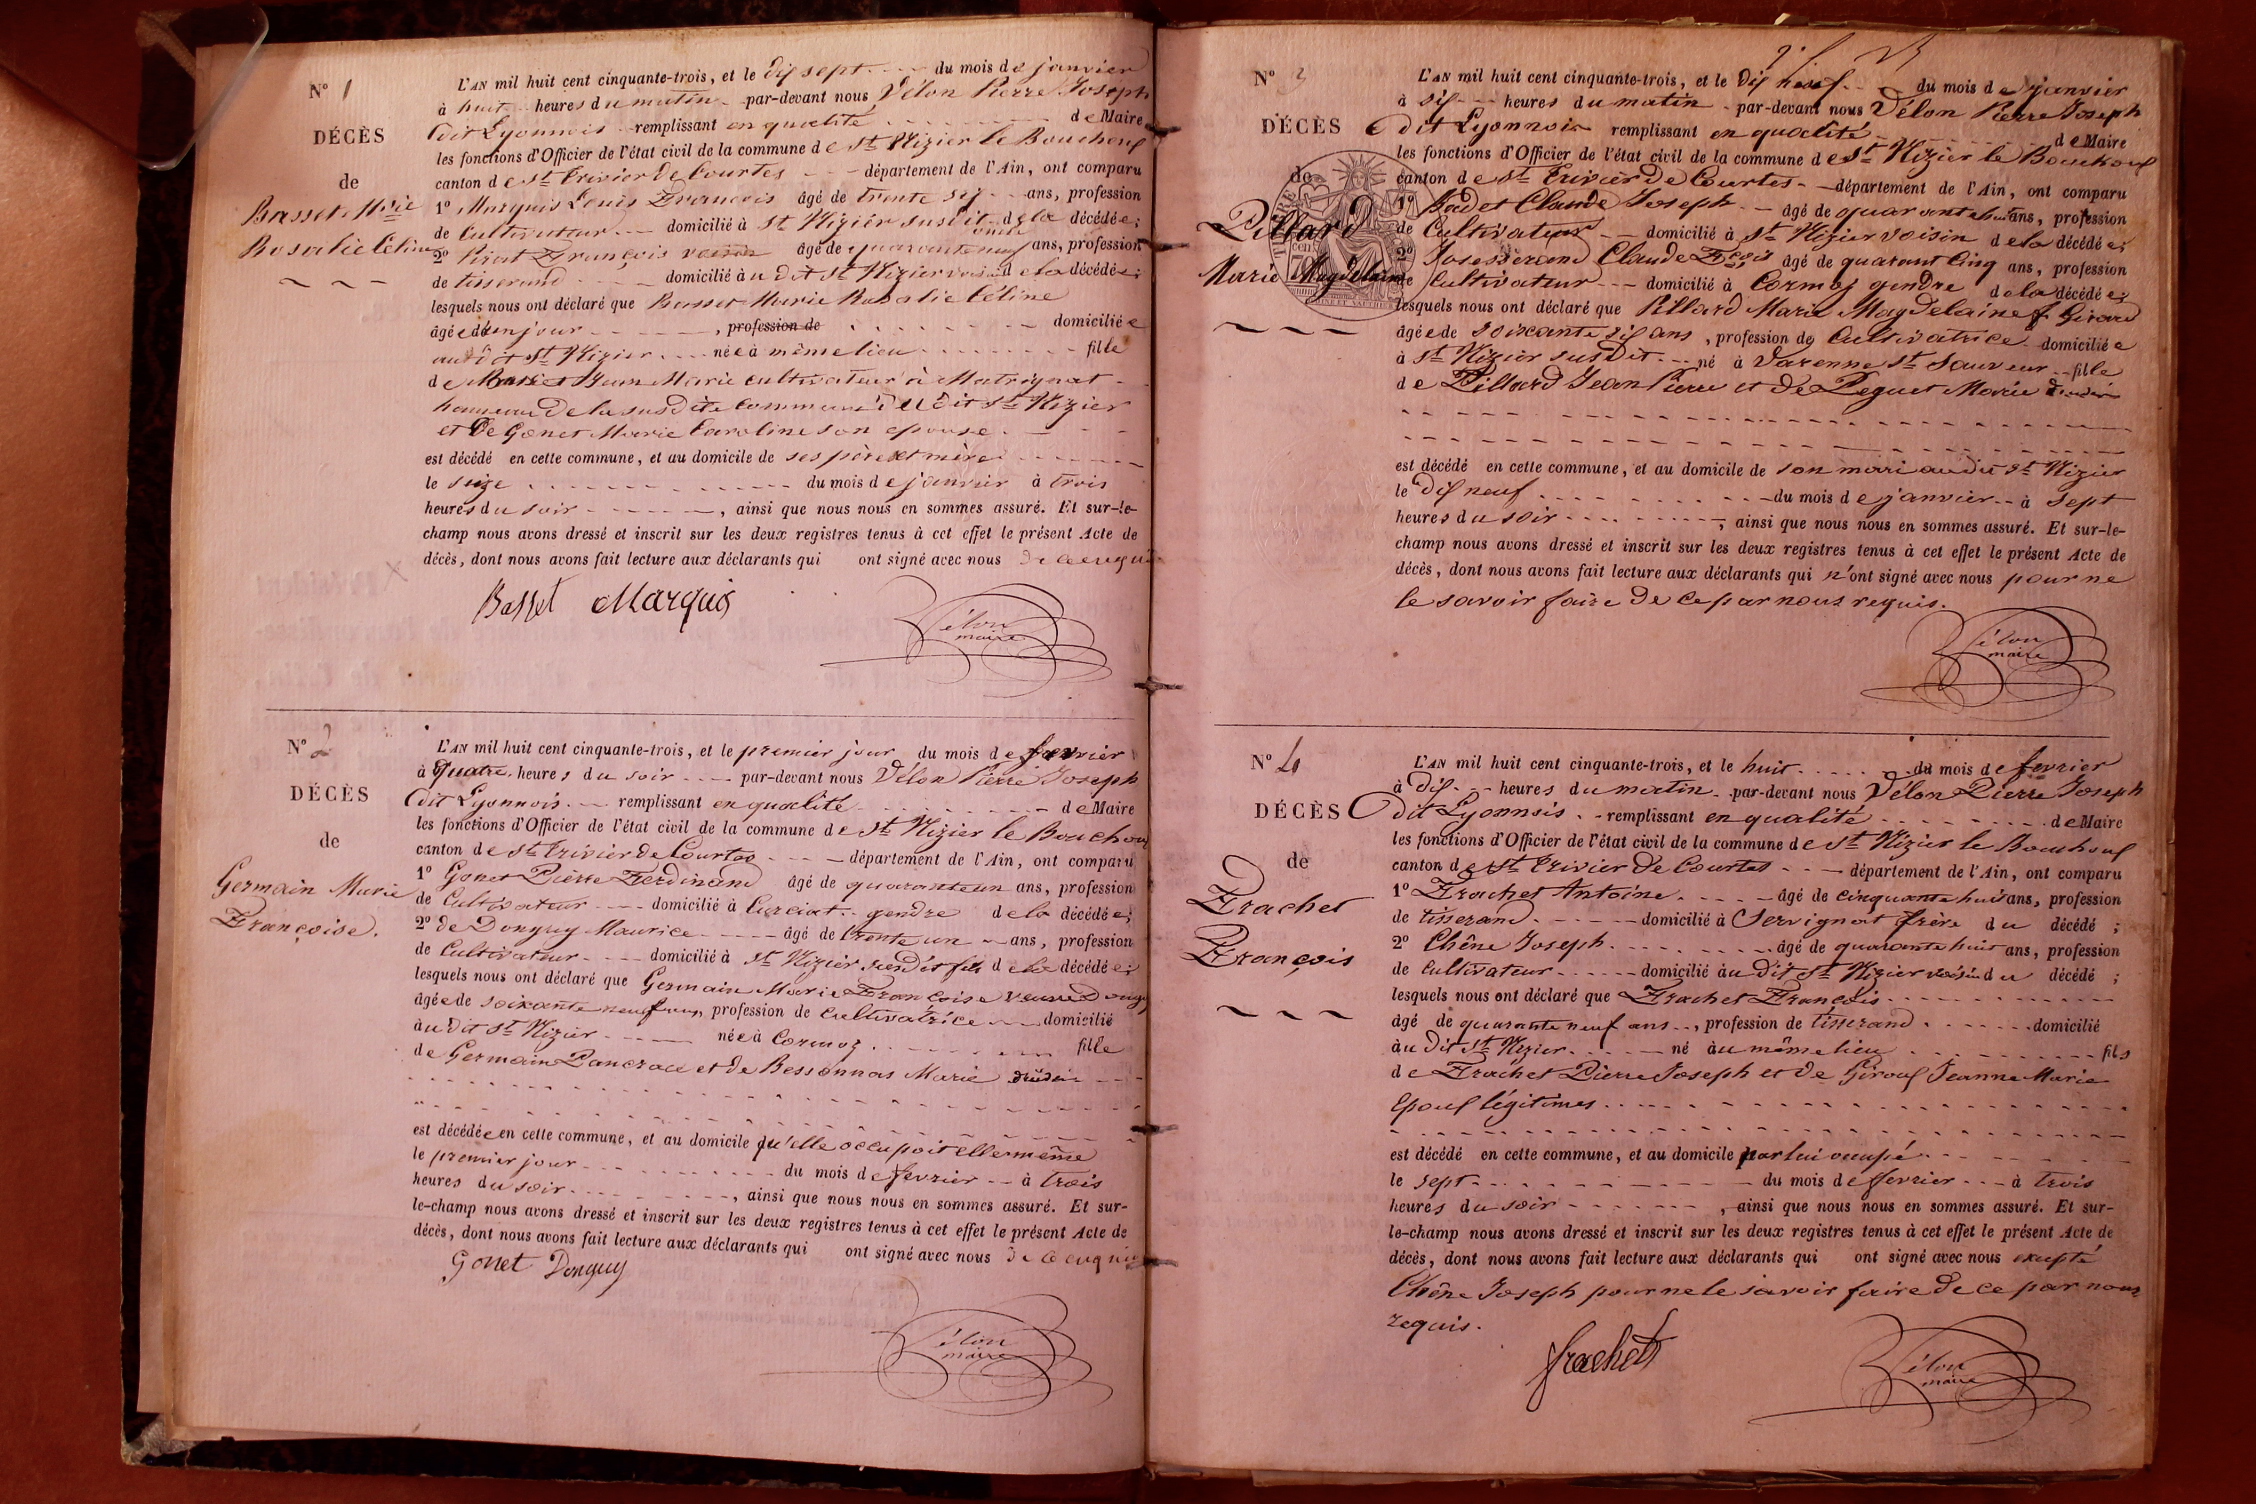 N° 1
DÉCÈS
de
Basset Mrie
Rosalie Céline
L'AN mil huit cent cinquante-trois, et le dix sept du mois de janvier
à huit heures du matin par-devant nous Vélon Pierre Joseph
dit Lyonnois remplissant en qualité de Maire
les fonctions d'Officier de l'état civil de la commune de St Nizier le Bouchoux
canton de St Trivier de Courtes département de l'Ain, ont comparu
1° Marquis Louis François âgé de trente six ans, profession
de Cultivateur domicilié à St Nizier susdit oncle de la décédée;
2° Pirat François voisin âgé de quarante neuf ans, profession
de tisserand domicilié au dit St Nizier voisin de la décédée;
lesquels nous ont déclaré que Basset Marie Rosalie Céline
âgée d'un jour, profession de domiciliée
au dit St Nizier née à même lieu fille
de Basset Jean Marie cultivateur à Matrignat
hameau de la susdite Commune du dit St Nizier
et de Gonet Marie Caroline son epouse
est décédé en cette commune, et au domicile de ses père et mère
le seize du mois de janvier à trois
heures du soir, ainsi que nous nous en sommes assuré. Et sur-le-
champ nous avons dressé et inscrit sur les deux registres tenus à cet effet le présent Acte de
décès, dont nous avons fait lecture aux déclarants qui ont signé avec nous de ce enquis
Basset Marquis
Vélon
maire
N° 2
DÉCÈS
de
Germain Marie
Françoise.
L'AN mil huit cent cinquante-trois, et le premier jour du mois de fevrier
à quatre heures du soir par-devant nous Vélon Pierre Joseph
dit Lyonnois remplissant en qualité de Maire
les fonctions d'Officier de l'état civil de la commune de St Nizier le Bouchoux
canton de St Trivier de Courtes département de l'Ain, ont comparu
1° Gonet Pierre Ferdinand âgé de quarante un ans, profession
de Cultivateur domicilié à Curciat gendre de la décédée;
2° de Donguy Maurice âgé de trente un ans, profession
de Cultivateur domicilié à St Nizier susdit fils de la décédée;
lesquels nous ont déclaré que Germain Marie Françoise veuve Donguy
âgée de soixante neuf ans, profession de cultivatrice domicilié
au dit St Nizier née à Cormoz fille
de Germain Pancrace et de Bessonnas Marie
est décédée en cette commune, et au domicile qu'elle occupoit elle même
le premier jour du mois de fevrier à trois
heures du soir, ainsi que nous nous en sommes assuré. Et sur-
le-champ nous avons dressé et inscrit sur les deux registres tenus à cet effet le présent Acte de
décès, dont nous avons fait lecture aux déclarants qui ont signé avec nous de ce enquis
Gonet Donguy
Vélon
maire
N° 3
DÉCÈS
de
Pillard
Marie Magdelaine
L'AN mil huit cent cinquante-trois, et le Dix neuf du mois de janvier
à six heures du matin par-devant nous Vélon Pierre Joseph
dit Lyonnois remplissant en qualité de Maire
les fonctions d'Officier de l'état civil de la commune de St Nizier le Bouchoux
canton de St Trivier de Courtes département de l'Ain, ont comparu
1° Badet Claude Joseph âgé de quarante huit ans, profession
de Cultivateur domicilié à St Nizier voisin de la décédée;
2° Josesserand Claude Fçois âgé de quarant cinq ans, profession
Cultivateur domicilié à Cormoz gendre de la décédée;
lesquels nous ont déclaré que Pillard Marie Magdelaine f Girard
âgée de soixante dix ans, profession de Cultivatrice domiciliée
à St Nizier susdit né à Varenne St Sauveur fille
de Pillard Jean Pierre et de Peguet Marie
est décédé en cette commune, et au domicile de son mari audit St Nizier
le dix neuf du mois de janvier à sept
heures du soir, ainsi que nous nous en sommes assuré. Et sur-le-
champ nous avons dressé et inscrit sur les deux registres tenus à cet effet le présent Acte de
décès, dont nous avons fait lecture aux déclarants qui n'ont signé avec nous pour ne
le savoir faire de ce par nous requis.
Vélon
maire
N° 4
DÉCÈS
de
Frachet
François
L'AN mil huit cent cinquante-trois, et le huit du mois de fevrier
à dix heures du matin par-devant nous Vélon Pierre Joseph
dit Lyonnois remplissant en qualité de Maire
les fonctions d'Officier de l'état civil de la commune de St Nizier le Bouchoux
canton de St Trivier de Courtes département de l'Ain, ont comparu
1° Frachet Antoine âgé de cinquante huit ans, profession
de tisserand domicilié à Servignat frère du décédé;
2° Chêne Joseph âgé de quarante huit ans, profession
de cultivateur domicilié au dit St Nizier voisin du décédé;
lesquels nous ont déclaré que Frachet François
âgé de quarante neuf ans, profession de tisserand domicilié
au dit St Nizier né au même lieu fils
de Frachet Pierre Joseph et de Giroux Jeanne Marie
Epoux légitimes
est décédé en cette commune, et au domicile par lui occupé
le sept du mois de fevrier à trois
heures du soir, ainsi que nous nous en sommes assuré. Et sur-
le-champ nous avons dressé et inscrit sur les deux registres tenus à cet effet le présent Acte de
décès, dont nous avons fait lecture aux déclarants qui ont signé avec nous excepté
Chêne Joseph pour ne le savoir faire de ce par nous
requis.
frachet
Vélon
maire